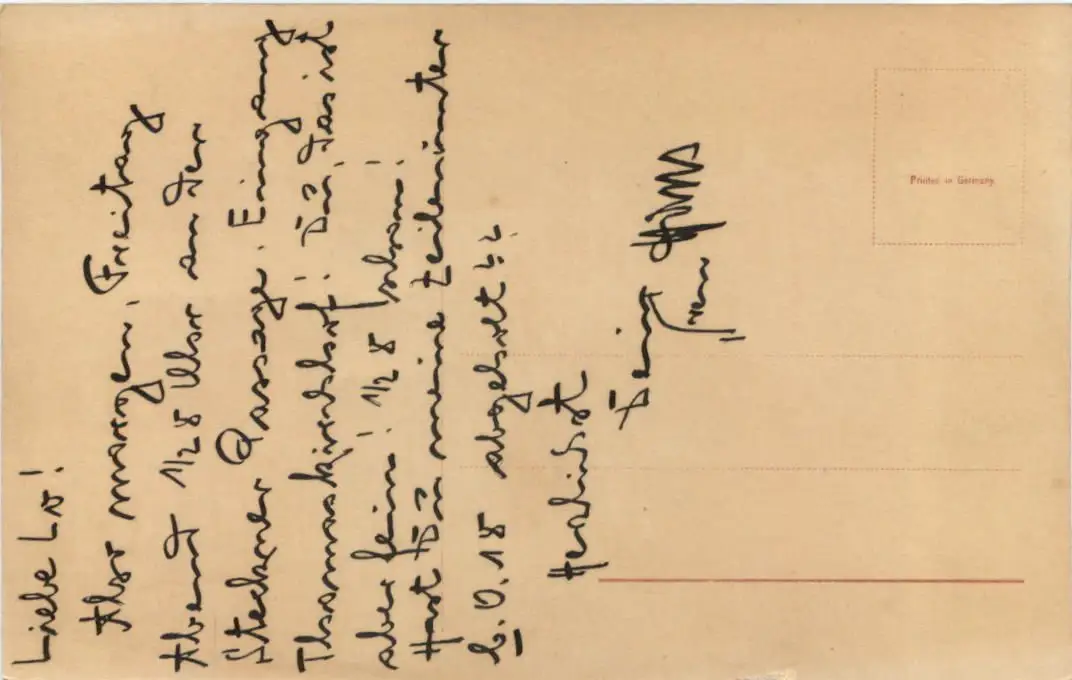 Liebe Lo!
Also morgen, Freitag
Abend 1/2 8 Uhr an der
Steckner Passage, Eingang
Thomaskirchhof! Du, das ist
aber fein! 1/2 8 schon!
Hast Du meine Zeilen unter
L.O.18 abgeholt??
Herzlichst
Dein
Printed in Germany